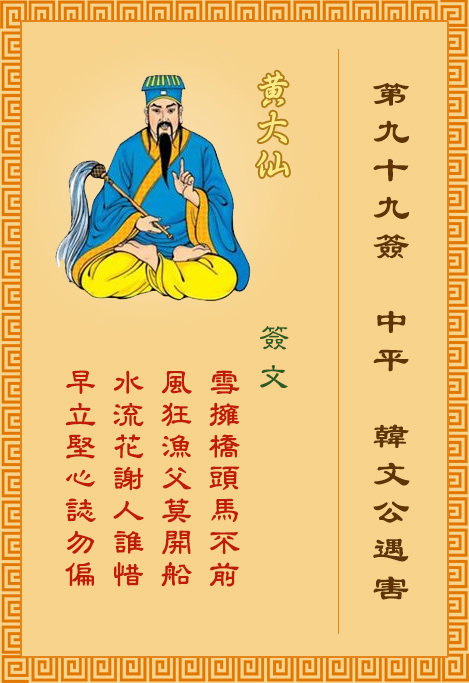 第九十九簽 中平 韓文公遇害
黄大仙
簽文
雪擁橋頭馬不前
風狂漁父莫開船
水流花謝人誰惜
早立堅心誌勿偏